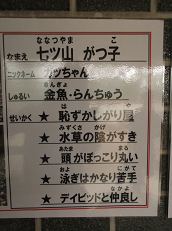 ななつやま こ
なまえ 七ツ山 がつ子
ニックネーム ガツちゃん
きんぎょ
しゅるい 金魚・らんちゅう
は や
せいかく ★ 恥ずかしがり屋
みずくさ かげ
★ 水草の陰がすき
あたま まる
★ 頭がぽっこり丸い
およ にがて
★ 泳ぎはかなり苦手
なかよ
★ デイビッドと仲良し